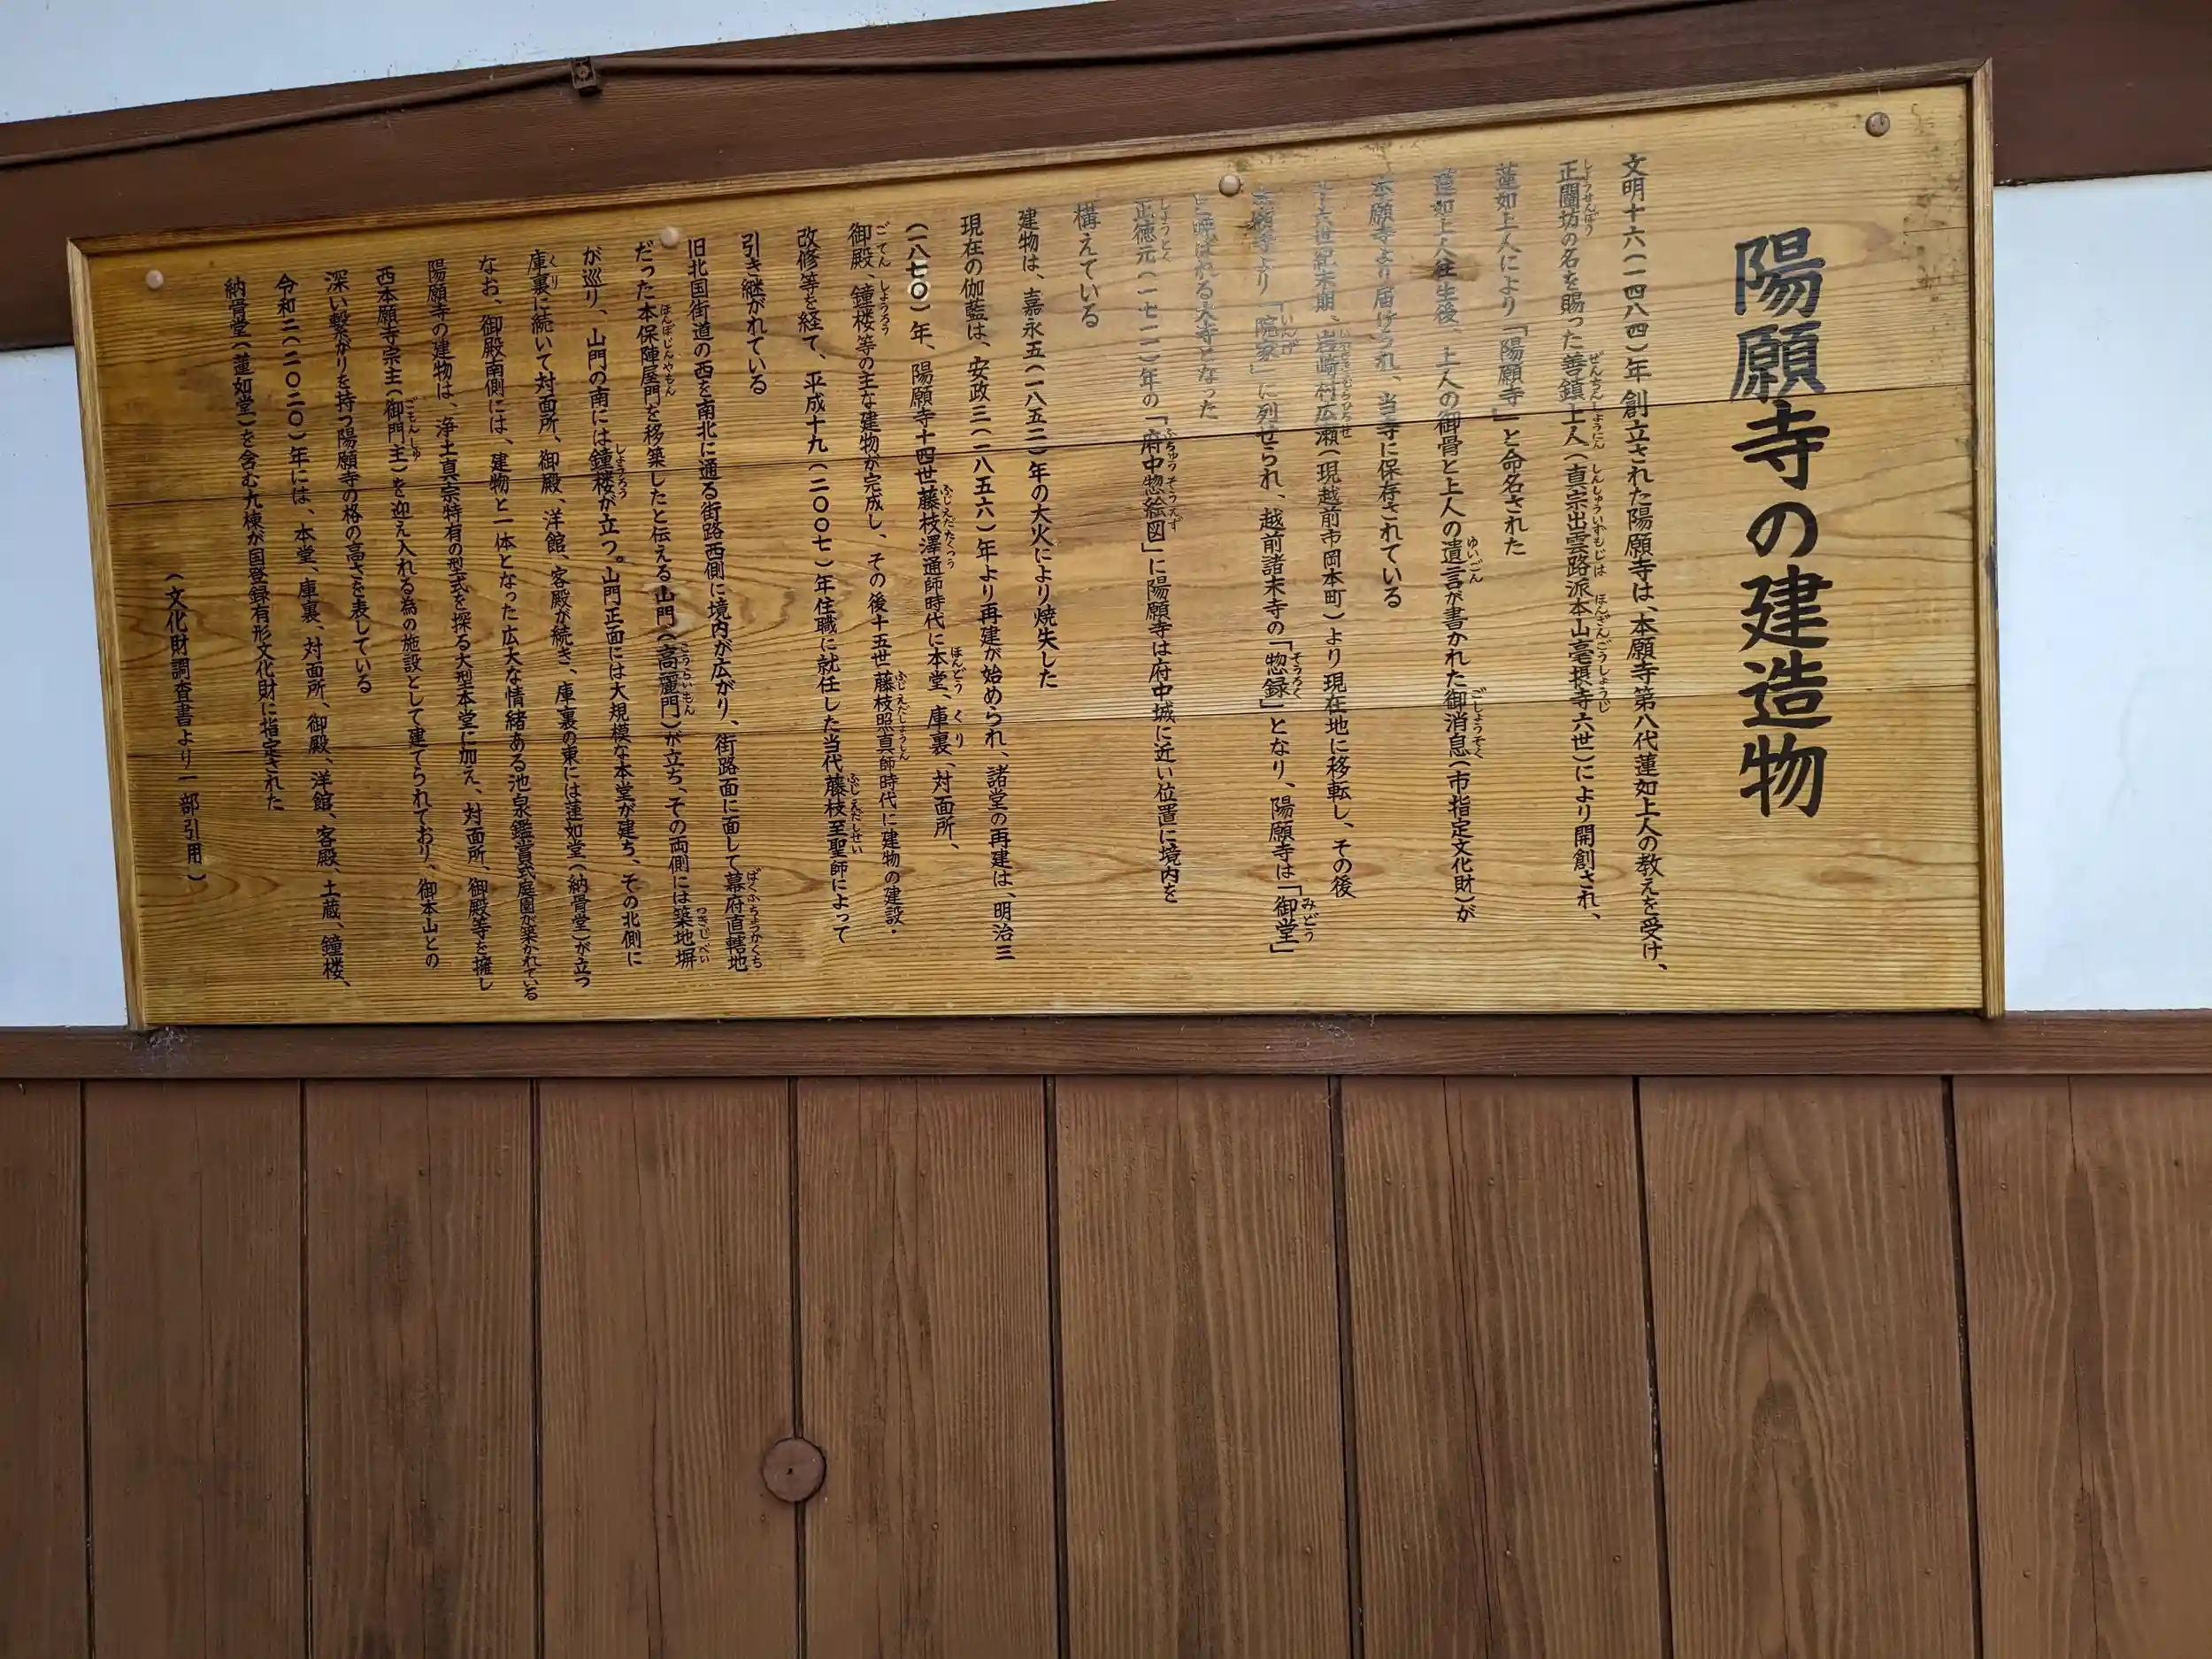 陽願寺の建造物
文明十六(一四八四)年創立された陽願寺は、本願寺第八代蓮如上人の教えを受け、
正闡坊の名を賜った善鎮上人(真宗出雲路派本山毫摂寺六世)により開創され、
蓮如上人により「陽願寺」と命名された
蓮如上人往生後、上人の御骨と上人の遺言が書かれた御消息(市指定文化財)が
本願寺より届けられ、当寺に保存されている
十六世紀末期、岩崎村広瀬(現越前市岡本町)より現在地に移転し、その後
本願寺より「院家」に列せられ、越前諸末寺の「惣録」となり、陽願寺は「御堂」
と呼ばれる大寺となった
正徳元(一七一一)年の「府中惣絵図」に陽願寺は府中城に近い位置に境内を
構えている
建物は、嘉永五(一八五二)年の大火により焼失した
現在の伽藍は、安政三(一八五六)年より再建が始められ、諸堂の再建は、明治三
(一八七〇)年、陽願寺十四世藤枝澤通師時代に本堂、庫裏、対面所、
御殿、鐘楼等の主な建物が完成し、その後十五世藤枝照真師時代に建物の建設・
改修等を経て、平成十九(二〇〇七)年住職に就任した当代藤枝至聖師によって
引き継がれている
旧北国街道の西を南北に通る街路西側に境内が広がり、街路面に面して幕府直轄地
だった本保陣屋門を移築したと伝える山門(高麗門)が立ち、その両側には築地塀
が巡り、山門の南には鐘楼が立つ。山門正面には大規模な本堂が建ち、その北側に
庫裏に続いて対面所、御殿、洋館、客殿が続き、庫裏の東には蓮如堂(納骨堂)が立つ
なお、御殿南側には、建物と一体となった広大な情緒ある池泉鑑賞式庭園が築かれている
陽願寺の建物は、浄土真宗特有の型式を探る大型本堂に加え、対面所、御殿等を擁し
西本願寺宗主(御門主)を迎え入れる為の施設として建てられており、御本山との
深い繋がりを持つ陽願寺の格の高さを表している
令和二(二〇二〇)年には、本堂、庫裏、対面所、御殿、洋館、客殿、土蔵、鐘楼、
納骨堂(蓮如堂)を含む九棟が国登録有形文化財に指定された
(文化財調査書より一部引用)